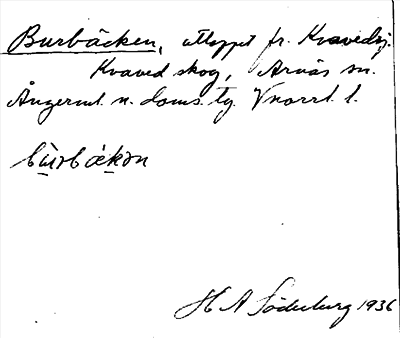 Burbäcken, utloppet fr. Kvavedsj.
Kvaved skog, Arnäs sn.
Ångerml. n. doms. tg Vnorrl. l.
H A Söderberg 1936